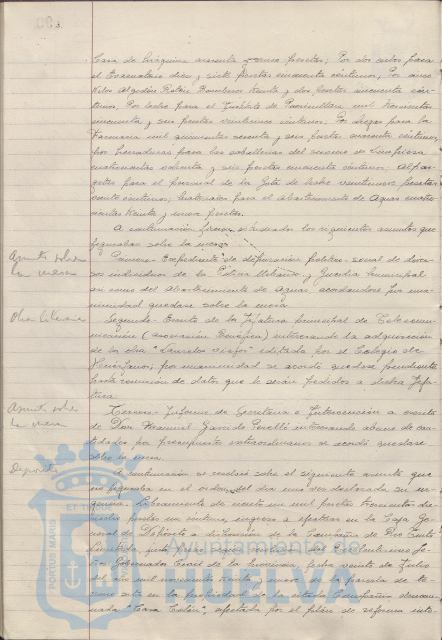 Casa de Máquinas cincuenta y cinco pesetas; Por dos cubos para
el Evacuatorio diez y siete pesetas cincuenta céntimos; Por cinco
Kilos Algodón Retén Bomberos treinta y dos pesetas cincuenta cén-
timos; Por leche para el Instituto de Puericultura mil novecientas
cincuenta y seis pesetas veinticinco céntimos; Por drogas para la
Farmacia mil quinientas sesenta y seis pesetas céntimos;
Por herraduras para las caballerías del servicio de Limpieza
cuatrocientas ochenta y seis pesetas cincuenta céntimos; Alpar-
gatas para el personal de la Gota de leche veintinueve pesetas
veinte céntimos; Materiales para el Abastecimiento de Aguas cuatro-
cientas treinta y nueve pesetas.
A continuación fueron los siguientes asuntos que
figuraban sobre la mesa:
Asuntos sobre
la mesa
Primero- Expediente de depuración político-social de diver-
sos individuos de la Policía Urbana y Guardia Municipal
así como del Abastecimiento de Aguas, acordándose por una-
nimidad quedase sobre la mesa.
Obra literaria
Segundo- Escrito de la Jefatura provincial de Telecomu-
nicación (Asociación Benéfica) interesando la adquisición
de la obra "Laureles viejos" editada por el Colegio de
Huérfanos; por unanimidad se acordó quedase pendiente
hasta remisión de datos que le serán pedidos a dicha Jefa-
tura.
Asuntos sobre
la mesa
Tercero- Informe de Secretaría e Intervención a escrito
de Don Manuel García de interesando abono de can-
tidades por presupuesto extraordinario se acordó quedase
sobre la mesa.
Deposito
A continuación se resolvió sobre el siguiente asunto que
no figuraba en el orden del día una vez declarada su ur-
gencia: Libramiento de ciento un mil pesetas trescientas
pesetas un céntimo, ingreso a efectuar en la Caja Ge-
neral de Depósito a disposición de la Compañía de Río Tinto
Limitada, justo precio según del Excelentísimo Se-
ñor Gobernador Civil de la provincia, fecha veinte de Julio
de mil novecientos treinta y nueve de la parcela de te-
rreno sita en la propiedad de la citada Compañía denomi-
nada "Casa Colón", afectada por el plan de reforma inte-
Ayuntamiento de
HUELVA
PORTUS MARIS ET TERRAE